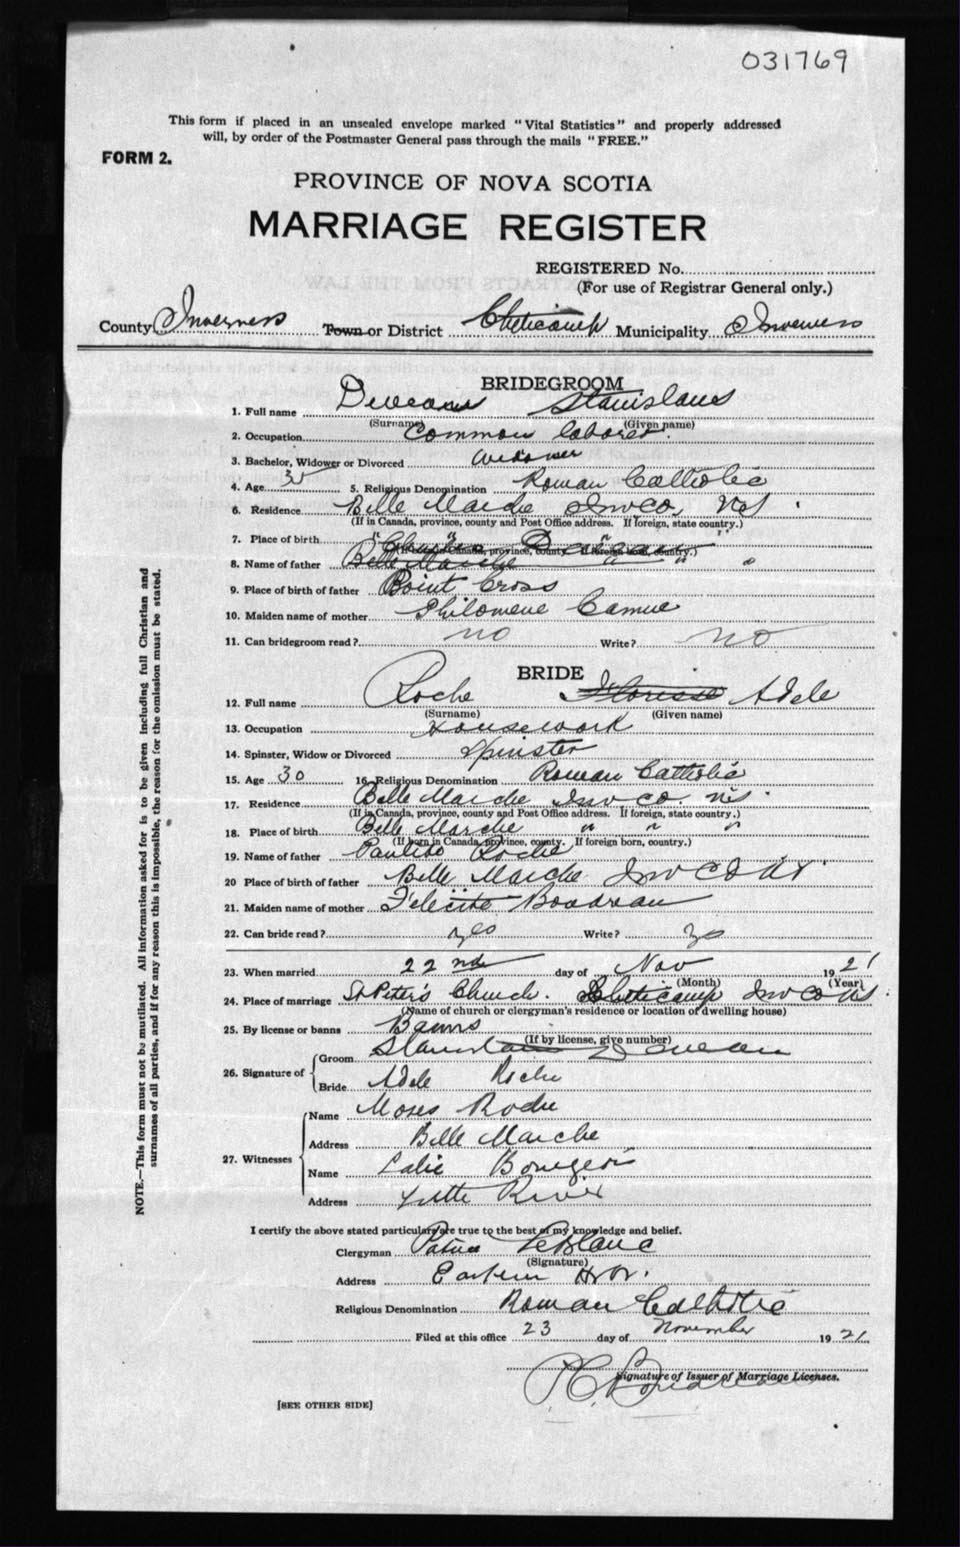 031769
This form if placed in an unsealed envelope marked "Vital Statistics" and properly addressed
will, by order of the Postmaster General pass through the mails "FREE."
FORM 2.
PROVINCE OF NOVA SCOTIA
MARRIAGE REGISTER
REGISTERED No.
(For use of Registrar General only.)
County Inverness Town or District Cheticamp Municipality Inverness
BRIDEGROOM
1. Full name Deveau Stanislaus
(Surname) (Given name)
2. Occupation Common laborer
3. Bachelor, Widower or Divorced Widower
4. Age 5. Religious Denomination Roman Catholic
6. Residence Belle Marche Inv Co. NS
(If in Canada, province, county and Post Office address. If foreign, state country.)
7. Place of birth " " "
(If born in Canada, province, county. If foreign born, country.)
8. Name of father Belle Marche " " "
9. Place of birth of father Point Cross
10. Maiden name of mother Philomene Camue
11. Can bridegroom read? no Write? no
BRIDE
12. Full name Roche Adele
(Surname) (Given name)
13. Occupation Housework
14. Spinster, Widow or Divorced Spinster
15. Age 30 16. Religious Denomination Roman Catholic
17. Residence Belle Marche Inv Co. NS.
(If in Canada, province, county and Post Office address. If foreign, state country.)
18. Place of birth Belle Marche " " "
(If born in Canada, province, county. If foreign born, country.)
19. Name of father Roche
20 Place of birth of father Belle Marche Inv Co NS
21. Maiden name of mother Felecite Boudreau
22. Can bride read? yes Write? yes
23. When married 22nd day of Nov 1921
(Month) (Year)
24. Place of marriage St Peter's Church. Cheticamp Inv Co NS.
(Name of church or clergyman's residence or location of dwelling house)
25. By license or banns Banns
(If by license, give number)
26. Signature of Groom Stanislaus Deveau
Bride Adele Roche
27. Witnesses Name Moses Roche
Address Belle Marche
Name Bourgeois
Address River
I certify the above stated particulars are true to the best of my knowledge and belief.
Clergyman LeBlanc
(Signature)
Address Eastern Hbr.
Religious Denomination Roman Catholic
Filed at this office 23 day of November 1921
Signature of Issuer of Marriage Licenses.
[SEE OTHER SIDE]
NOTE.—This form must not be mutilated. All information asked for is to be given including full Christian and
surnames of all parties, and if for any reason this is impossible, the reason for the omission must be stated.